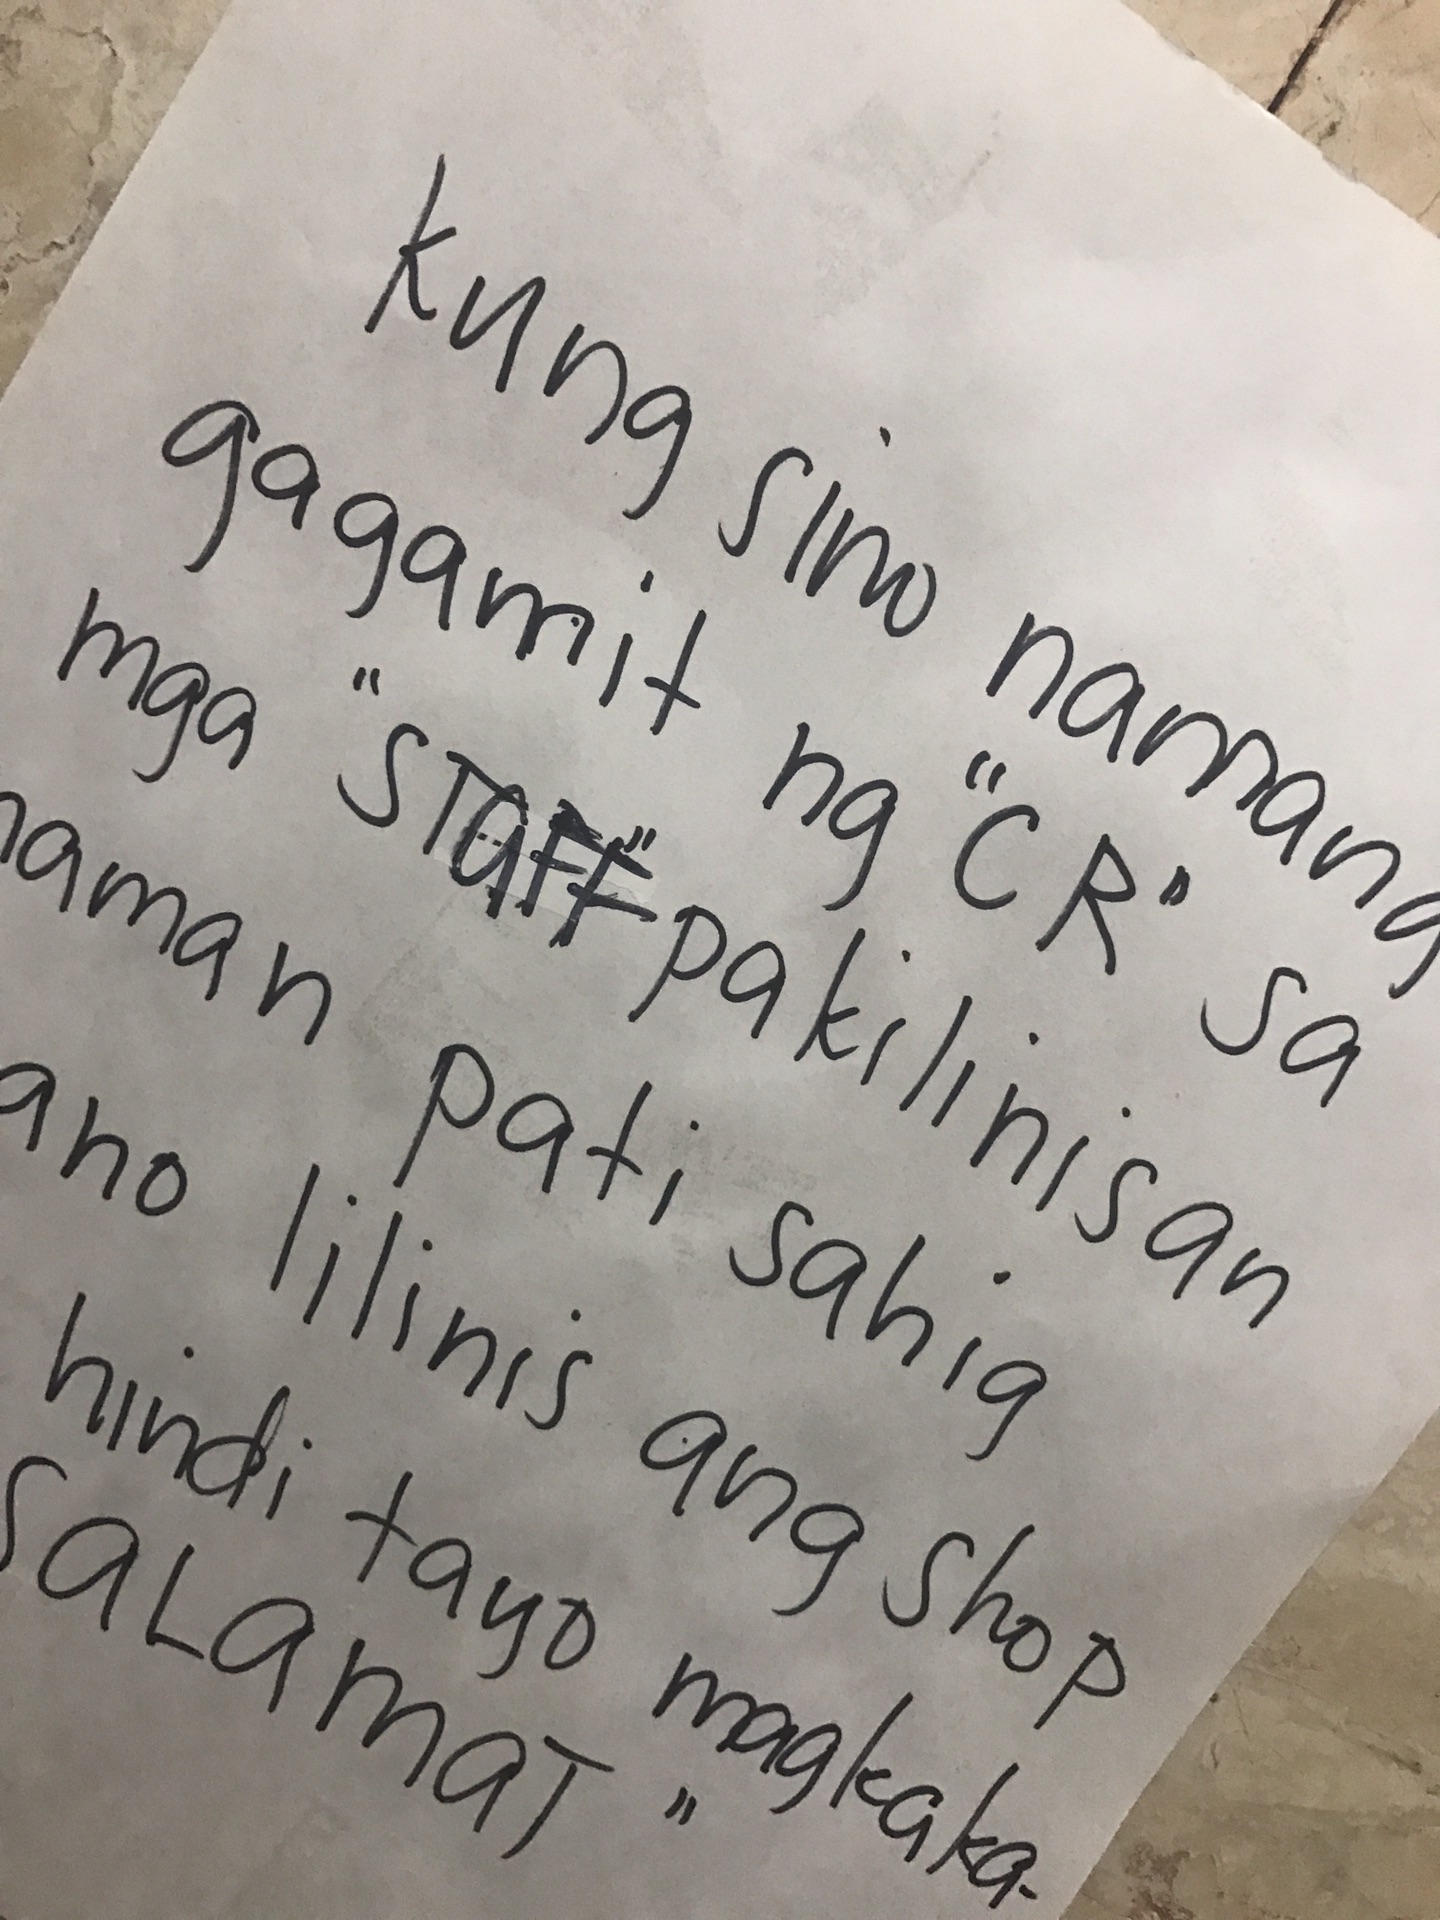 kung sino namang
gagamit ng "CR" sa
mga "STaFF" pakilinisan
naman pati sahig
ano lilinis ang shop
hindi tayo magkaka-
SaLamaT "